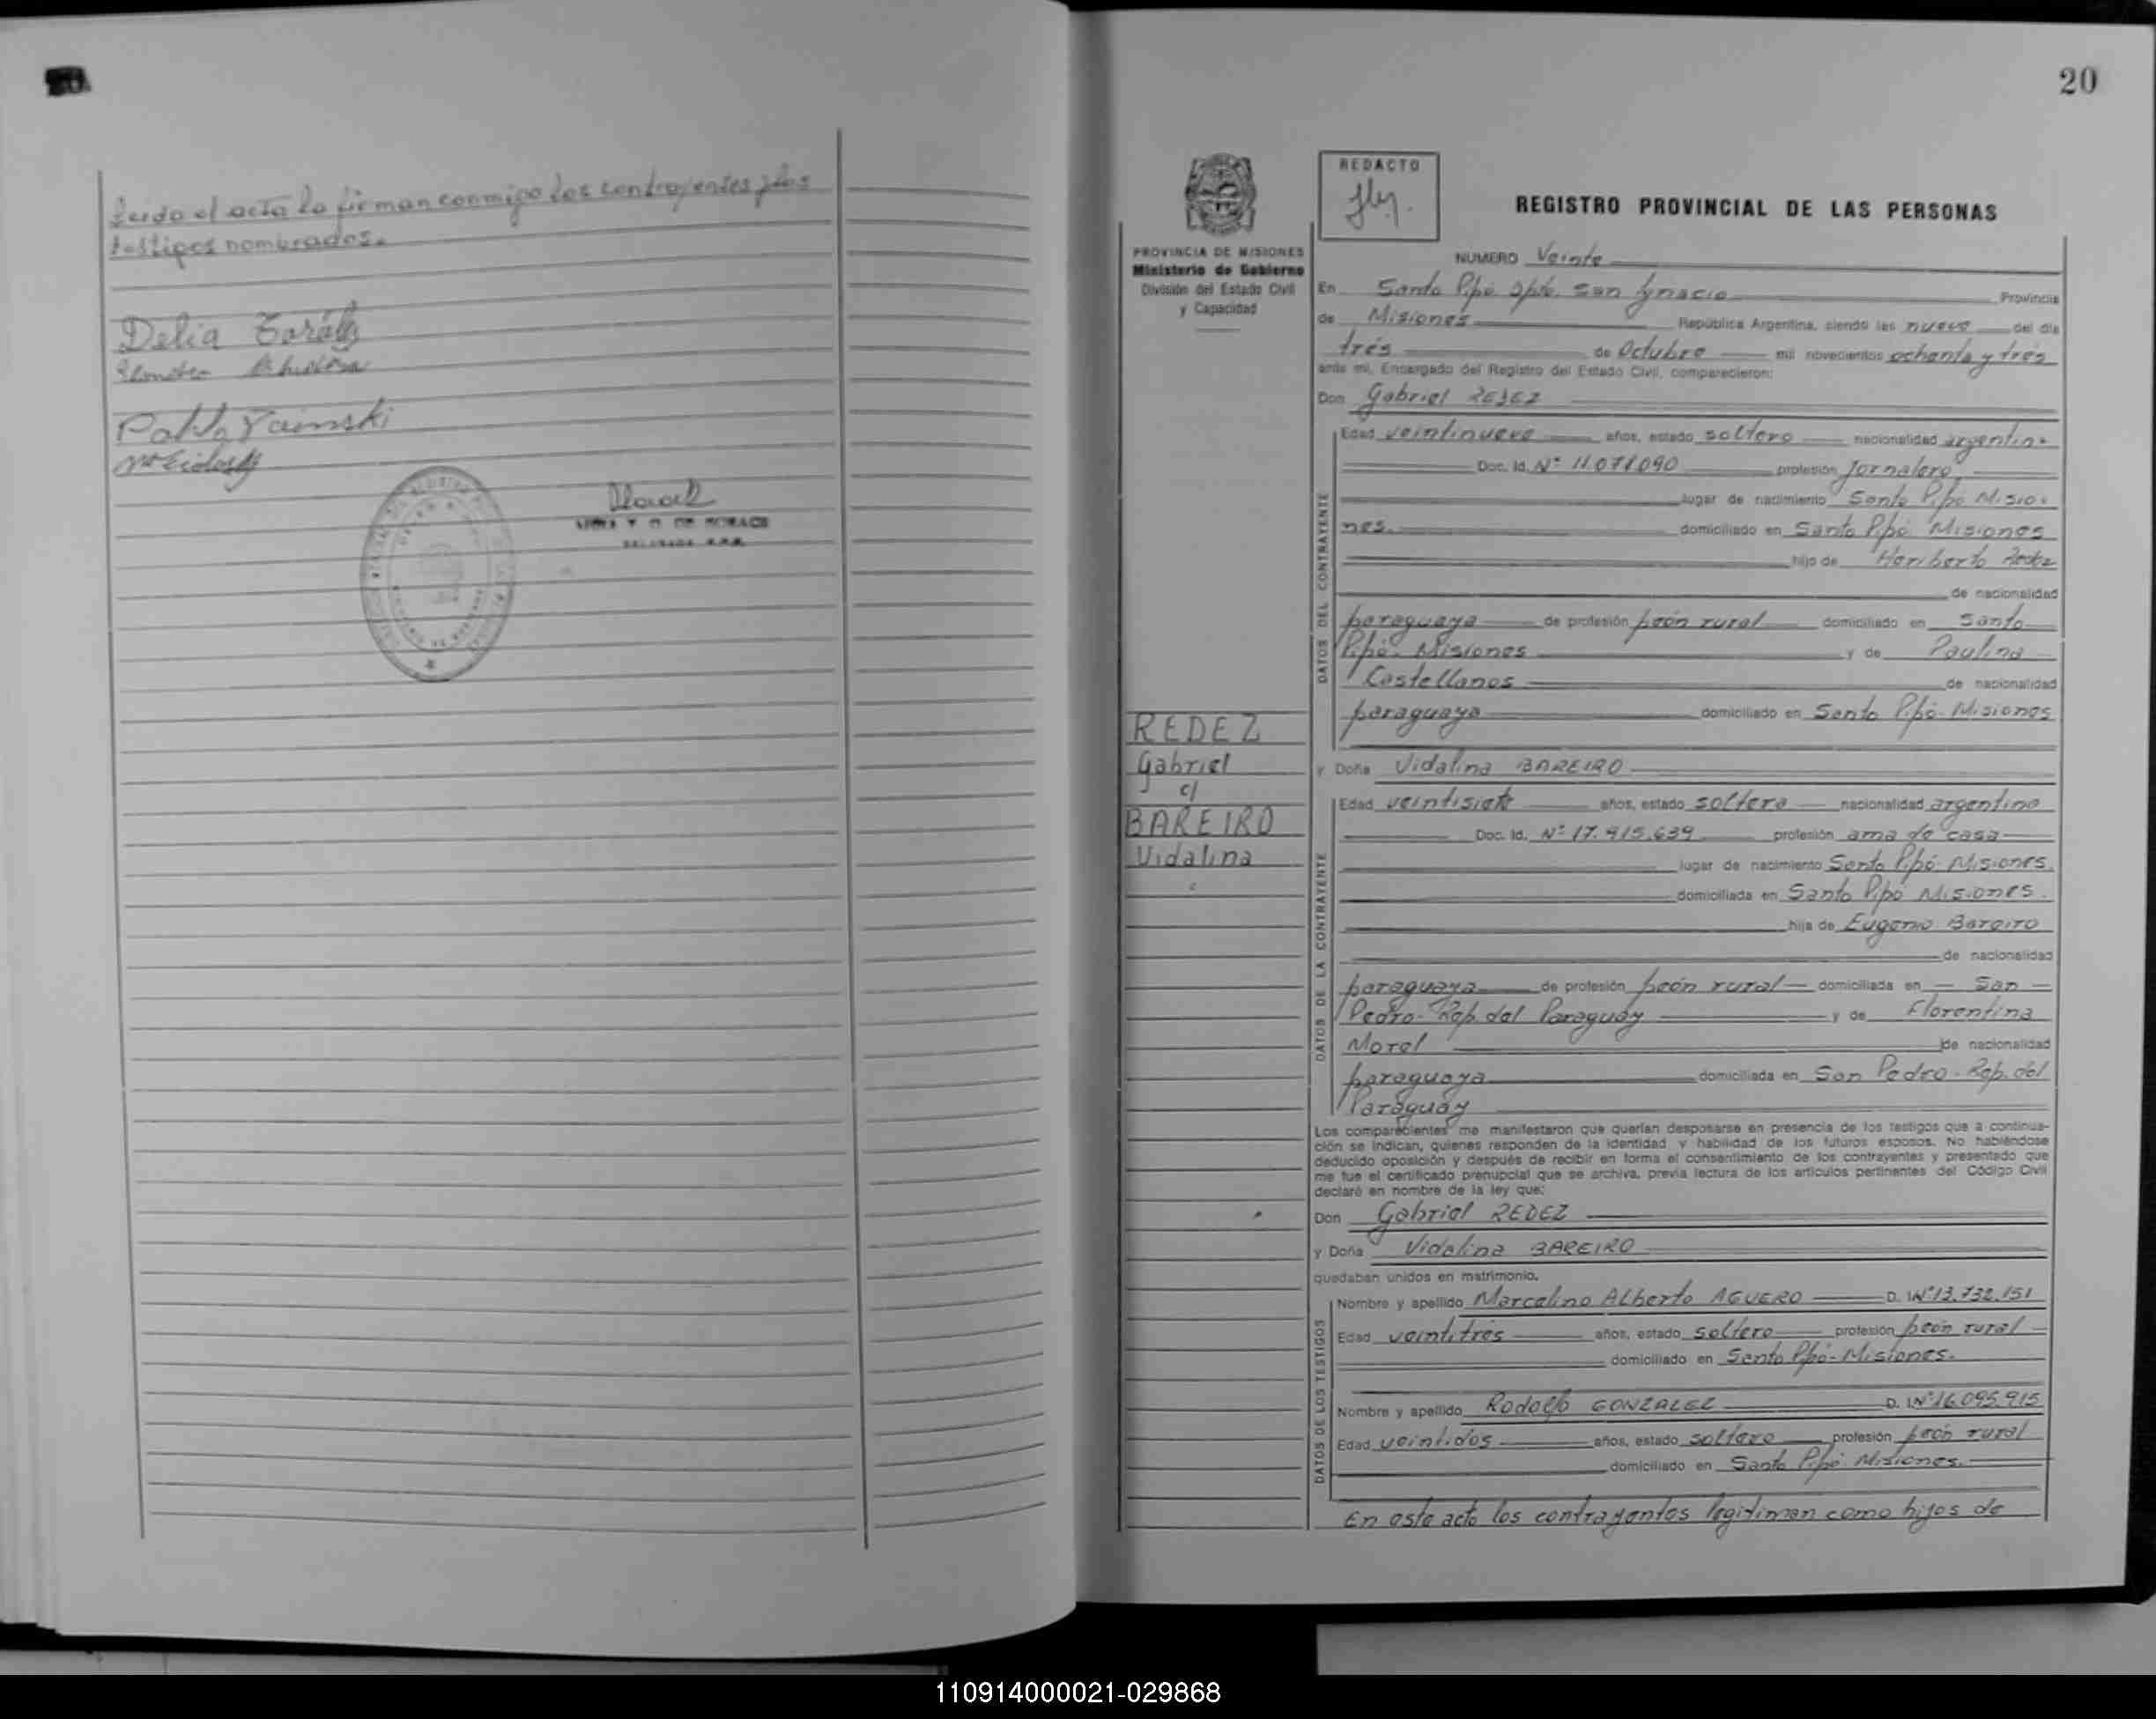 Leido el acta la firman conmigo los contrayentes y los
testigos nombrados.
Delia
Pablo
20
REDACTO
REGISTRO PROVINCIAL DE LAS PERSONAS
PROVINCIA DE MISIONES
Ministerio de Gobierno
División del Estado Civil
y Capacidad
NUMERO Veinte
En Santo Pipó Dpto. San Ignacio Provincia
de Misiones República Argentina, siendo las nueve del día
trés de Octubre mil novecientos ochenta y tres
ante mí, Encargado del Registro del Estado Civil, comparecieron:
Don Gabriel REDEZ
DATOS DEL CONTRAYENTE
Edad veintinueve años, estado soltero nacionalidad argentina
Doc. Id. Nº 11.071.090 profesión Jornalero
lugar de nacimiento Santo Pipó Misio-
nes. domiciliado en Santo Pipó Misiones
hijo de Heriberto Redez
de nacionalidad
paraguaya de profesión peón rural domiciliado en Santo
Pipó- Misiones y de Paulina
Castellanos de nacionalidad
paraguaya domiciliado en Santo Pipó- Misiones
REDEZ
Gabriel
c/
BAREIRO
Vidalina
y Doña Vidalina BAREIRO
DATOS DE LA CONTRAYENTE
Edad veintisiete años, estado soltera nacionalidad argentina
Doc. Id. Nº 17.415.639 profesión ama de casa
lugar de nacimiento Santo Pipó- Misiones.
domiciliada en Santo Pipó Misiones.
hija de Eugenio Bareiro
de nacionalidad
paraguaya de profesión peón rural domiciliada en San
Pedro- Rep. del Paraguay y de Florentina
Morel de nacionalidad
paraguaya domiciliada en San Pedro- Rep. del
Paraguay
Los comparecientes me manifestaron que querían desposarse en presencia de los testigos que a continua-
ción se indican, quienes responden de la identidad y habilidad de los futuros esposos. No habiéndose
deducido oposición y después de recibir en forma el consentimiento de los contrayentes y presentado que
me fue el certificado prenupcial que se archiva, previa lectura de los artículos pertinentes del Código Civil
declaré en nombre de la ley que:
Don Gabriel REDEZ
y Doña Vidalina BAREIRO
quedaban unidos en matrimonio.
DATOS DE LOS TESTIGOS
Nombre y apellido Marcelino Alberto AGUERO D. I. Nº 13.732.151
Edad veintitres años, estado soltero profesión peón rural
domiciliado en Santo Pipó- Misiones.
Nombre y apellido Rodolfo GONZALEZ D. I. Nº 16.095.915
Edad veintidos años, estado soltero profesión peón rural
domiciliado en Santo Pipó- Misiones.
En este acto los contrayentes legitiman como hijos de
110914000021-029868